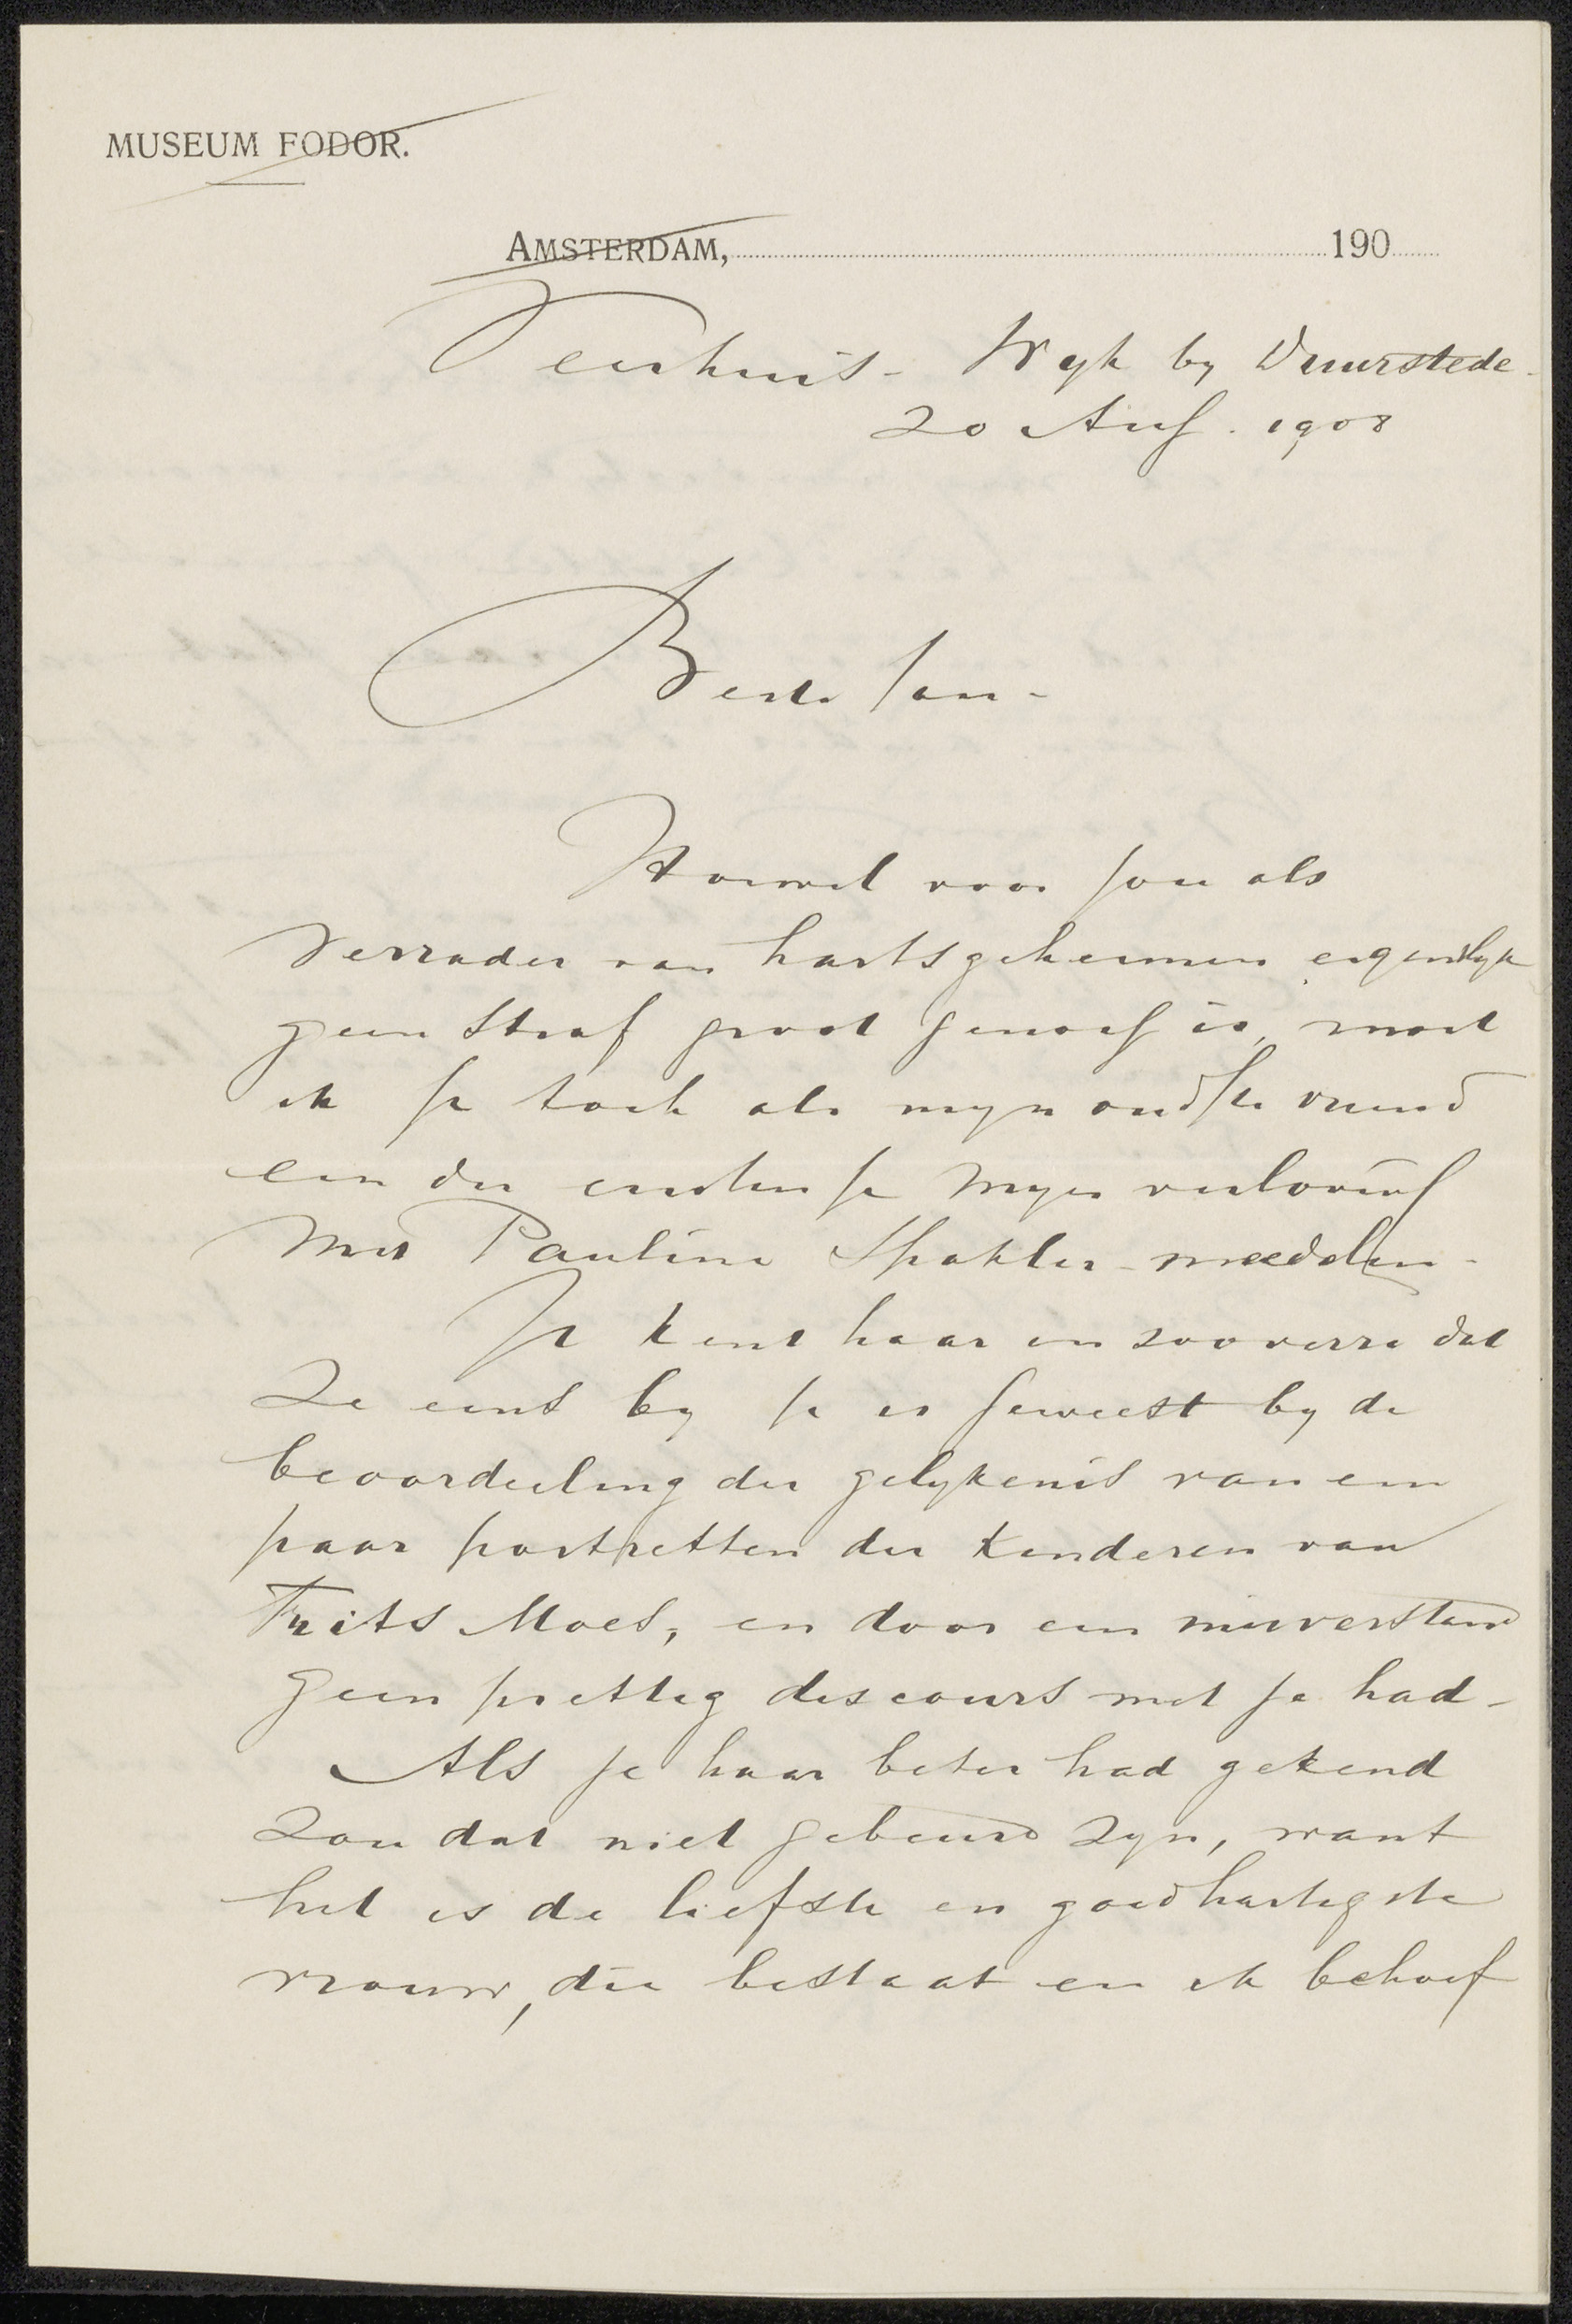 MUSEUM FODOR.
AMSTERDAM, 190
Veerhuis - Wyk by Duurstede.
20 Aug. 1908
Beste Jan -
Hoewel voor jou als
verrader van hartsgeheimen eigenlyk
geen straf groot genoeg is, moet
ik je toch als myn oudste vriend
een der eersten je myn verloving
met Pauline Spakler - meedelen -
Je kent haar in zooverre dat
ze eens by je is geweest by de
beoordeeling der gelykenis van een
paar portretten der kinderen van
Frits Moes, en door een misverstand
geen prettig discours met je had -
Als je haar beter had gekend
zou dat niet gebeurd zyn, want
het is de liefste en goedhartigste
vrouw, die bestaat en ik behoef